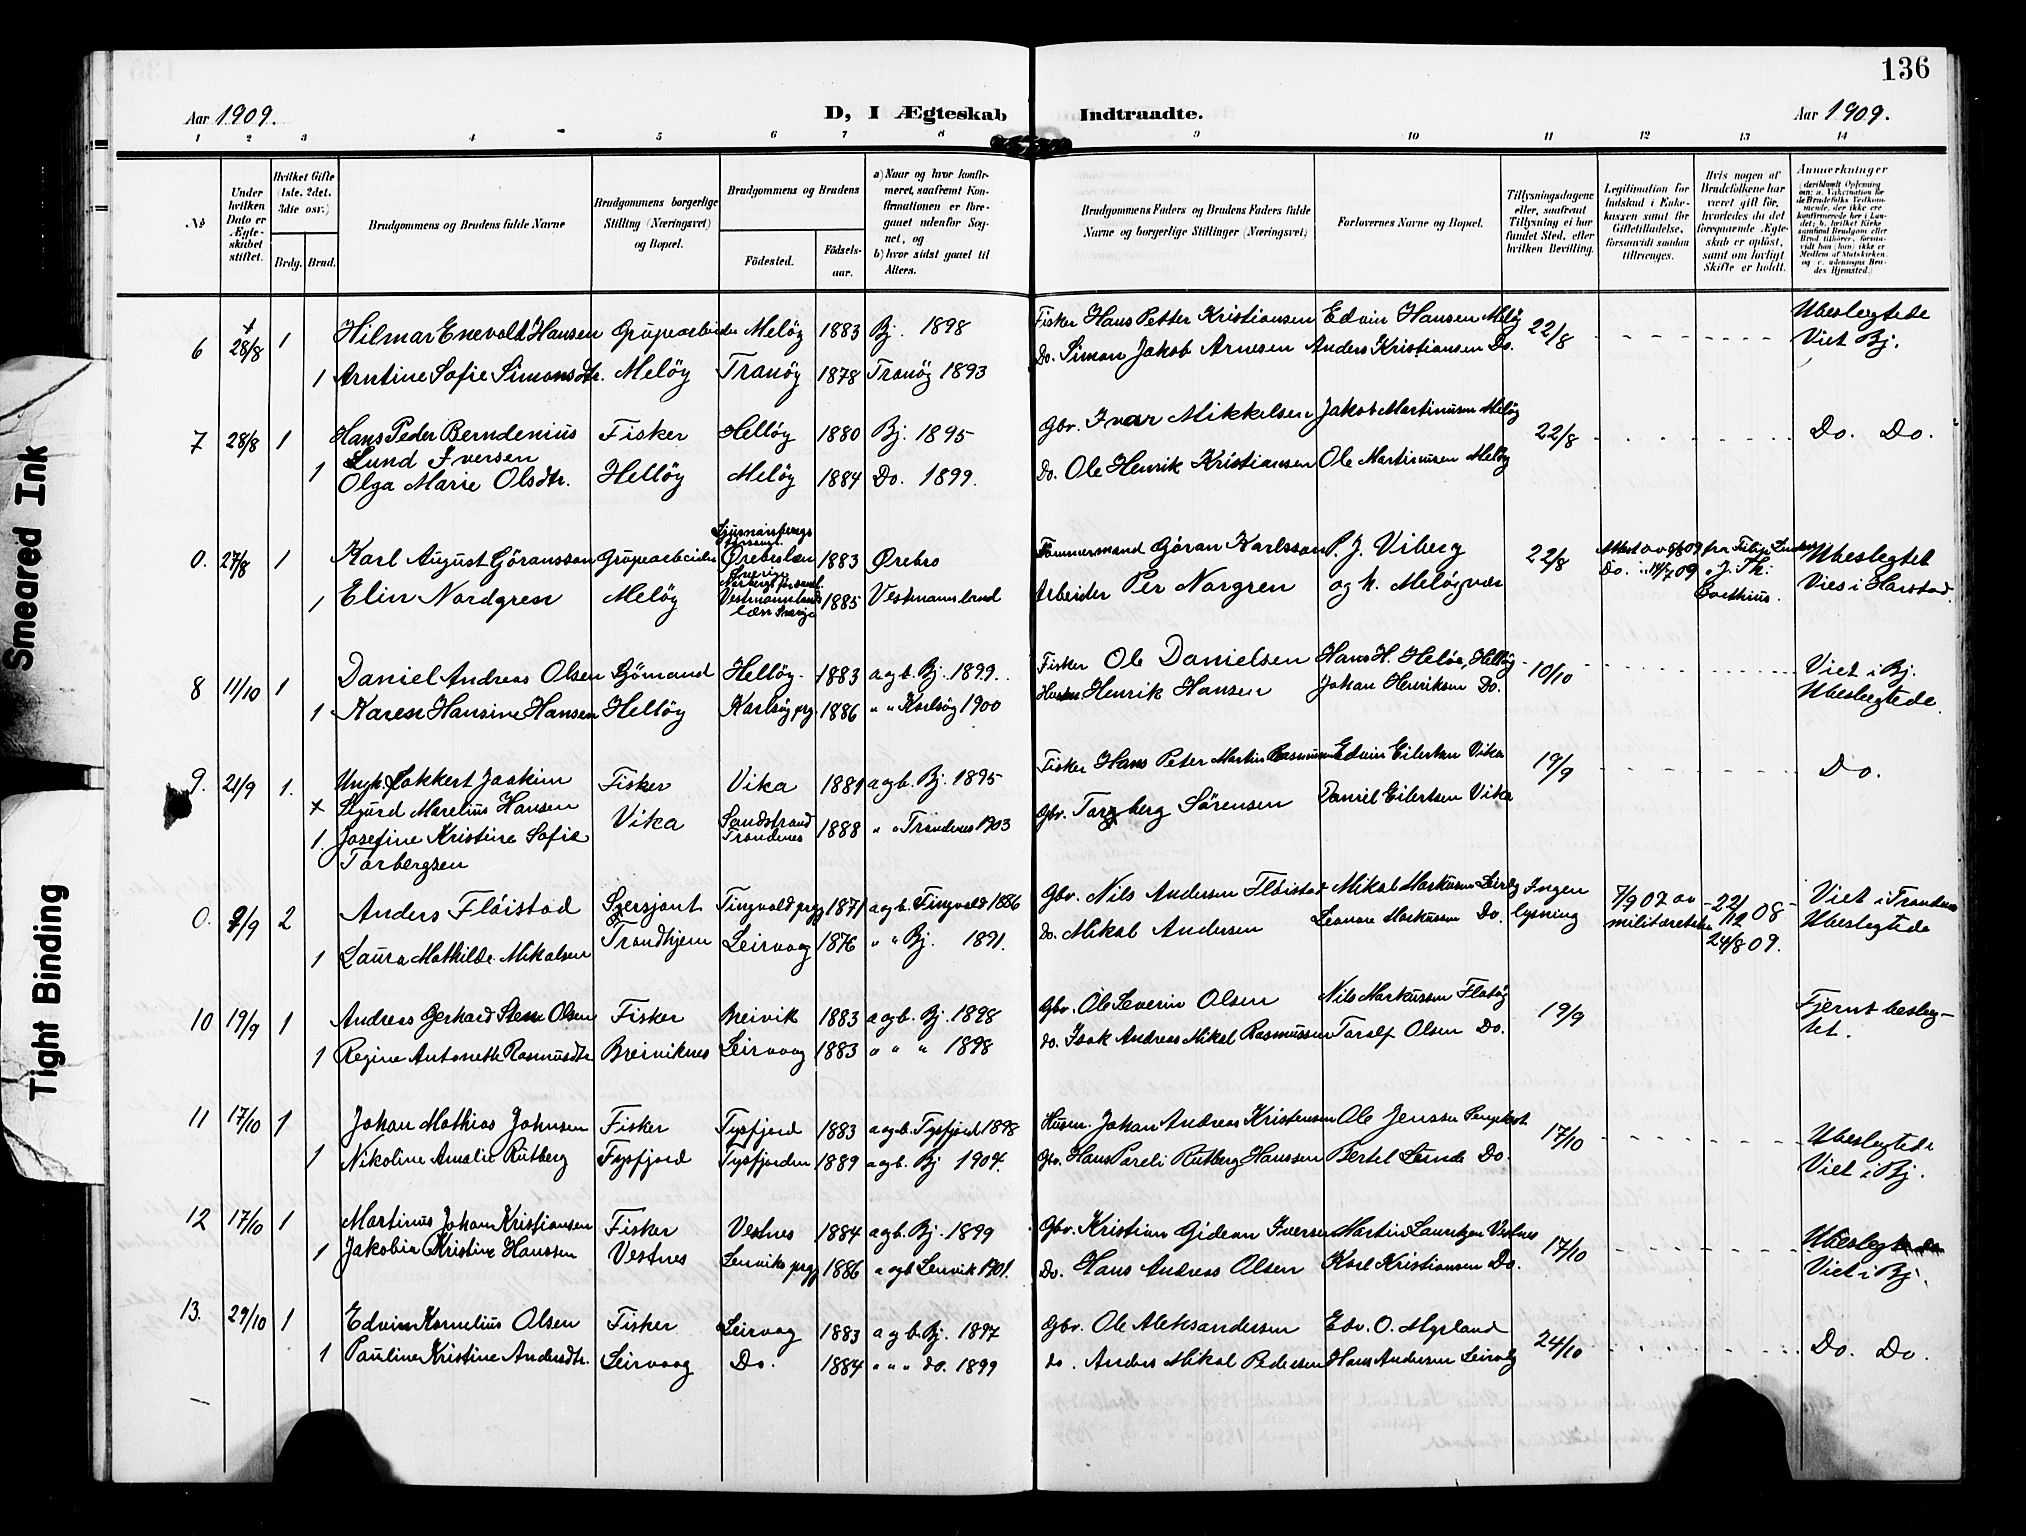 136
Aar 1909.
D, I Ægteskab Indtraadte.
Aar 1909.
1 2 3 4 5 6 7 8 9 10 11 12 13 14
No
Under hvilken Dato er Ægteskabet stiftet.
Hvilket Gifte (1ste, 2det, 3die osv.)
Brdg. Brud.
Brudgommens og Brudens fulde Navne
Brudgommens borgerlige Stilling (Næringsvei) og Bopæl.
Brudgommens og Brudens
Födested.
Födselsaar.
a) Naar og hvor konfirmeret, saafremt Konfirmationen er foregaaet udenfor Sognet, og
b) hvor sidst gaaet til Alters.
Brudgommens Faders og Brudens Faders fulde Navne og borgerlige Stillinger (Næringsvei)
Forlovernes Navne og Bopæl.
Tillysningsdagene eller, saafremt Tillysning ei har fundet Sted, efter hvilken Bevilling.
Legitimation for Indskud i Enkekassen samt for Giftetilladelse, forsaavidt saadan tiltrænges.
Hvis nogen af Brudefolkene har været gift för, hvorledes da det foregaaende Ægteskab er oplöst, samt om lovligt Skifte er holdt.
Anmærkninger
6 + 28/8 1 Hilmar Enevold Hansen Grupearbeider Meløy 1883 Bj. 1898 Fisker Hans Petter Kristiansen Edvin Hansen Meløy 22/8 Ubeslegtede
1 Arntine Sofie Simonsdtr. Meløy Tranøy 1878 Tranøy 1893 Do. Simon Jakob Arnesen Anders Kristiansen Do. Viet Bj.
7 28/8 1 Hans Peder Berndenius Fisker Helløy 1880 Bj. 1895 Gbr. Ivar Mikkelsen Jakob Martinusen Meløy 22/8 Do. Do.
Lund Iversen
1 Olga Marie Olsdtr. Helløy Meløy 1884 Do. 1899. Do. Ole Henrik Kristiansen Ole Martinusen Meløy
0. 27/8 1 Karl August Göransson Grupearbeider Ørebislæn 1883 Ørebro Tømmermand Göran Karlsson P. J. Viberg 22/8 Ubeslegtet
1 Elin Nordgren Meløy Vestmannlands læn Sverige 1885 Vestmanland Arbeider Per Norgren og h. Meløyvær Vies i Harstad.
8 11/10 1 Daniel Andreas Olsen Sjömand Helløy. 1883 a og b. Bj. 1899. Fisker Ole Danielsen Hans H. Heløe, Helløy 10/10 Viet i Bj.
1 Karen Hansine Hansen Helløy Karlsøy prgj. 1886 " " Karlsøy 1900 Henrik Hansen Johan Henriksen Do. Ubeslegtede.
9. 21/9 1. Ungk. Lokkert Joakim Fisker Vika 1881 a og b. Bj. 1895 Fisker Hans Peter Martin Rasmussen Edvin Eilertsen Vika 19/9 Do.
x Sigurd Marelius Hansen Vika Sandstrand
1. Josefine Kristine Sofie Trondenes 1888 " " Trondenes 1903 Gbr. Torberg Sørensen Daniel Eilertsen Vika
Torbergsen
0. 9/9 2 Anders Fløistad Sersjant Tingvold prgj 1871 a og b. Tingvold 1886 Gbr. Nils Andersen Fløistad Mikal Markussen Leirvåg Ingen lysning 7/9 07 av militæretaten 22/12 08 Viet i Trondenes
1 Laura Mathilde Mikalsen Trondhjem Leirvaag 1876 " " Bj. 1891. do. Mikal Andersen Leonare Markussen Do. 24/8 09. Ubeslegtede
10 19/9 1 Andreas Gerhard Steen Olsen Fisker Breivik 1883 a og b. Bj. 1898 Gbr. Ole Severin Olsen Nils Markussen Flatøy 19/9 Fjernt besleg-
1 Regine Antonette Rasmusdtr. Breiviknes Leirvaag 1883 " " " 1898 do. Isak Andreas Mikal Rasmussen Toralf Olsen Do. tet.
11 17/10 1 Johan Mathias Johnsen Fisker Tysfjord 1883 a og b. Tysfjord 1898 Husm. Johan Andreas Kristensen Ole Jenssen 17/10 Ubeslegtede
1 Nikoline Amalie Rutberg Tysfjord Tysfjorden 1889 a og b. Bj 1904. Gbr. Hans Pareli Rutberg Hanssen Bertel Lund Do. Viet i Bj.
12 17/10 1 Martinus Johan Kristiansen Fisker Vestnes 1884 a og b. Bj. 1899 Gbr. Kristian Gideon Iversen Martin Lauritzen Vestnes 17/10
1 Jakobia Kristine Hanssen Vestnes Lenviks prgj 1886 a og b Lenvik 1901. Do. Hans Andreas Olsen Karl Kristiansen Do. Viet i Bj.
13. 29/10 1 Edvin Kornelius Olsen Fisker Leirvag 1883 a og b. Bj. 1897 Gbr. Ole Aleksandersen Edv. O. Myrland 24/10 Do. Do.
1 Pauline Kristine Andersdtr. Leirvaag Do. 1884 " " " do. 1899 do. Anders Mikal Pedersen Hans Andersen Leirvåg
Smeared Ink
Tight Binding